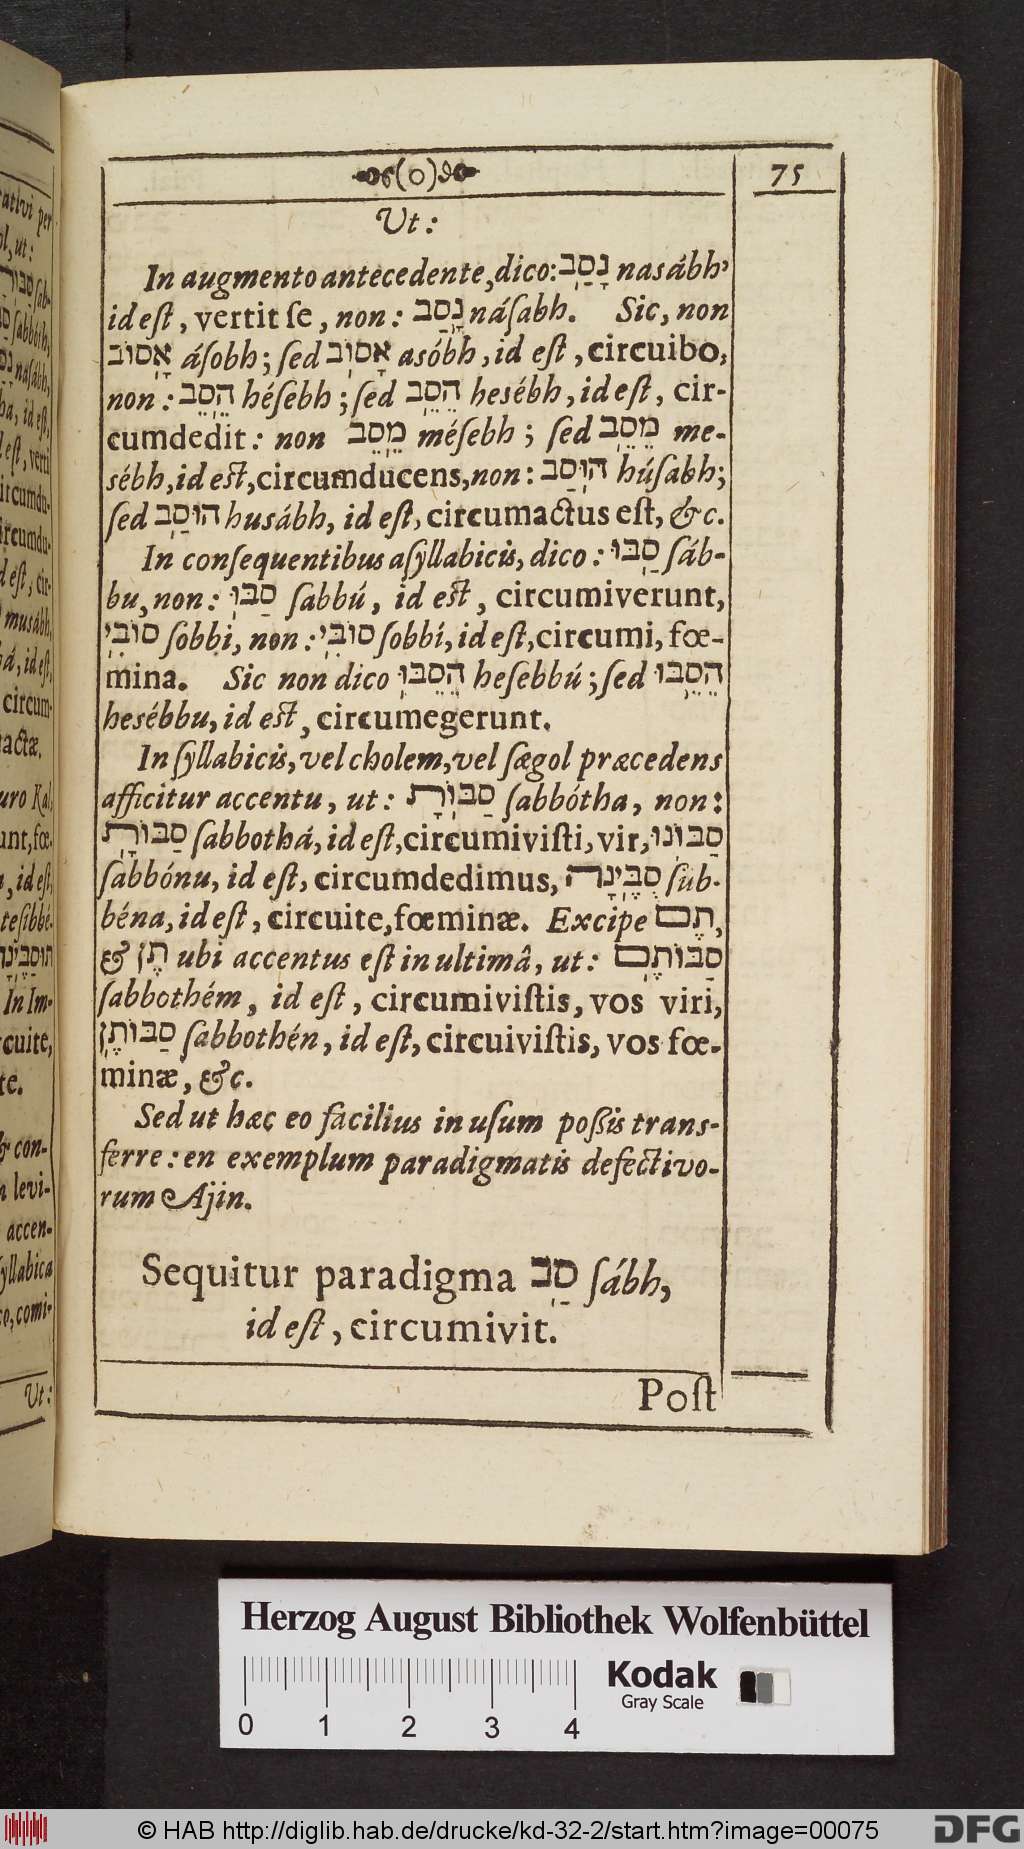 (0)
75
Ut:
In augmento antecedente, dico: נָסַ֖ב nasábh,
id eſt, vertit ſe, non: נָ֖סַב náſabh. Sic, non
אָ֖סוֹב áſobh; ſed אָסוֹ֖ב asóbh, id eſt, circuibo,
non: הֵ֖סֵב héſebh; ſed הֵסֵ֖ב hesébh, id eſt, cir-
cumdedit: non מֵ֖סֵב méſebh; ſed מֵסֵ֖ב me-
sébh, id eſt, circumducens, non: הוּ֖סַב húſabh;
ſed הוּסַ֖ב husábh, id eſt, circumactus eſt, &c.
In conſequentibus aſyllabicis, dico: סַ֖בּוּ ſáb-
bu, non: סַבּוּ֖ ſabbú, id eſt, circumiverunt,
סוֹבִּ֖י ſobbi, non: סוֹבִּ֖י ſobbí, id eſt, circumi, fœ-
mina. Sic non dico הֵסֵבּוּ֖ heſebbú; ſed הֵסֵ֖בּוּ
hesébbu, id eſt, circumegerunt.
In ſyllabicis, vel cholem, vel ſægol præcedens
afficitur accentu, ut: סַבּוֹ֖תָ ſabbótha, non:
סַבּוֹתָ֖ ſabbothá, id eſt, circumiviſti, vir, סַבּוֹ֖נוּ
ſabbónu, id eſt, circumdedimus, סֻבֶּ֖ינָה ſub-
béna, id eſt, circuite, fœminæ. Excipe תֶם,
& תֶן ubi accentus eſt in ultimâ, ut: סַבּוֹתֶ֖ם
ſabbothém, id eſt, circumiviſtis, vos viri,
סַבּוֹתֶ֖ן ſabbothén, id eſt, circuiviſtis, vos fœ-
minæ, &c.
Sed ut hæc eo facilius in uſum poſsis trans-
ferre: en exemplum paradigmatis defectivo-
rum Ajin.
Sequitur paradigma סַ֖ב ſábh,
id eſt, circumivit.
Poſt
Herzog August Bibliothek Wolfenbüttel
0 1 2 3 4
Kodak
Gray Scale
© HAB http://diglib.hab.de/drucke/kd-32-2/start.htm?image=00075
DFG